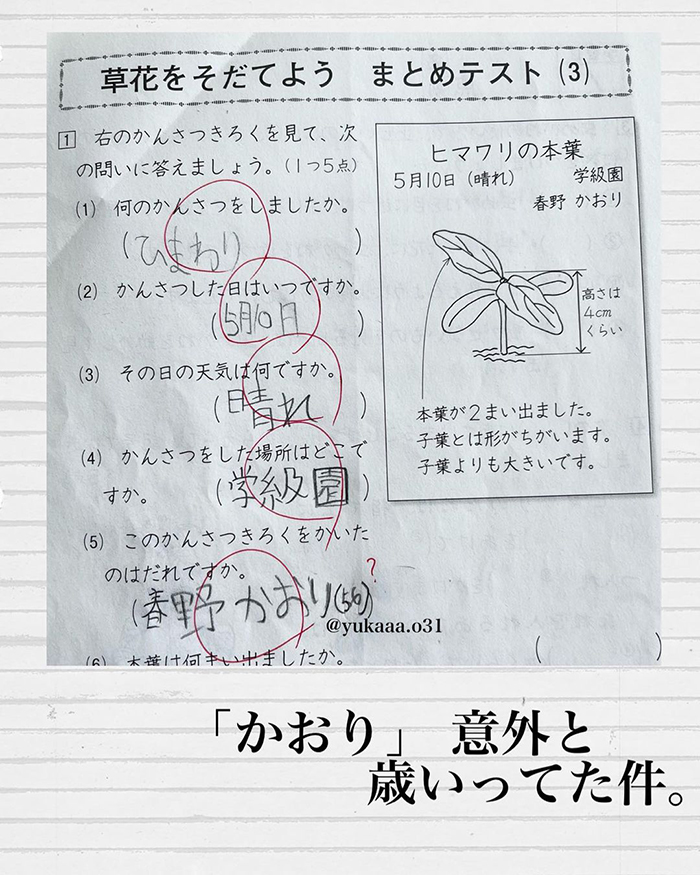 草花をそだてよう　まとめテスト(3)
1 右のかんさつきろくを見て、次
の問いに答えましょう。(1つ5点)
(1) 何のかんさつをしましたか。
(ひまわり)
(2) かんさつした日はいつですか。
(5月10日)
(3) その日の天気は何ですか。
(晴れ)
(4) かんさつをした場所はどこで
すか。(学級園)
(5) このかんさつきろくをかいた
のはだれですか。
?
(春野かおり(56))
@yukaaa.o31
(6) 本葉は何まい出ましたか。
( )
ヒマワリの本葉
5月10日(晴れ) 学級園
春野 かおり
高さは
4cm
くらい
本葉が2まい出ました。
子葉とは形がちがいます。
子葉よりも大きいです。
「かおり」 意外と
歳いってた件。